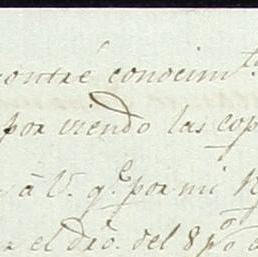 contré conocim.to
por viendo las cop
à V. q.e por mi R
r el dro. del 8 p.o